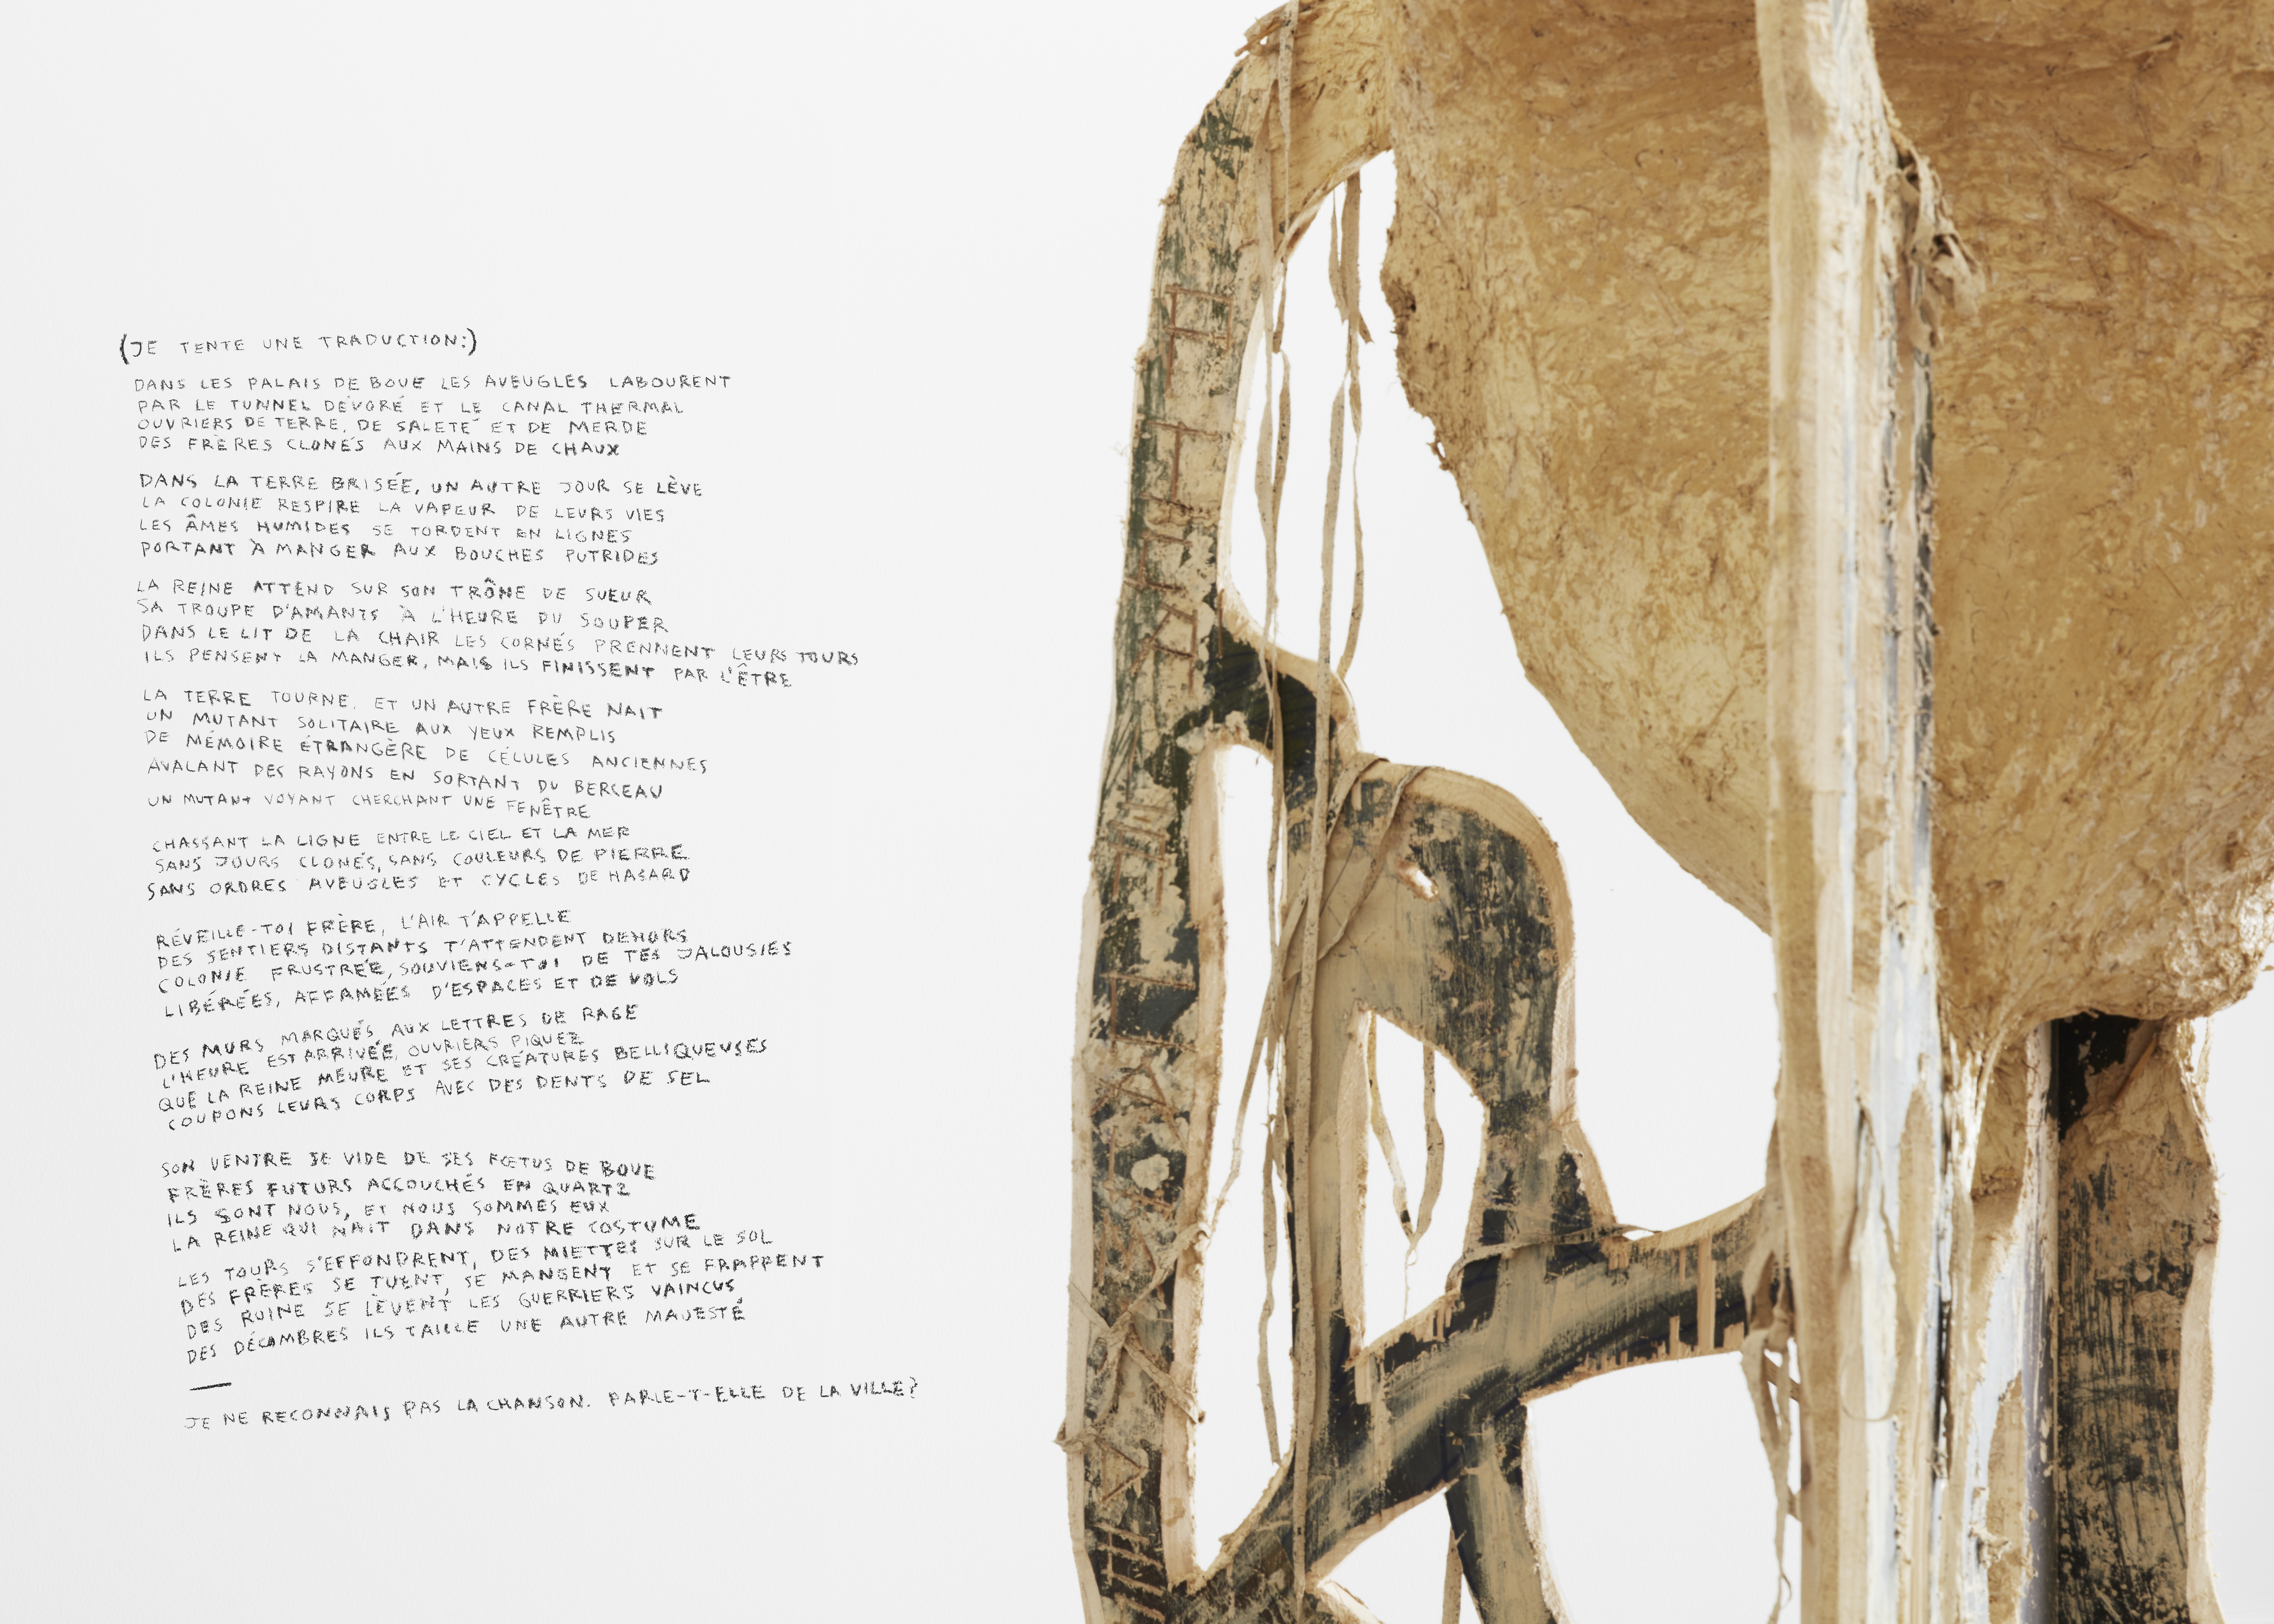 (JE TENTE UNE TRADUCTION:)
DANS LES PALAIS DE BOUE LES AVEUGLES LABOURENT
PAR LE TUNNEL DÉVORÉ ET LE CANAL THERMAL
OUVRIERS DE TERRE, DE SALETÉ ET DE MERDE
DES FRÈRES CLONÉS AUX MAINS DE CHAUX
DANS LA TERRE BRISÉE, UN AUTRE JOUR SE LÈVE
LA COLONIE RESPIRE LA VAPEUR DE LEURS VIES
LES ÂMES HUMIDES SE TORDENT EN LIGNES
PORTANT À MANGER AUX BOUCHES PUTRIDES
LA REINE ATTEND SUR SON TRÔNE DE SUEUR
SA TROUPE D'AMANTS À L'HEURE DU SOUPER
DANS LE LIT DE LA CHAIR LES CORNÉS PRENNENT LEURS TOURS
ILS PENSENT LA MANGER, MAIS ILS FINISSENT PAR L'ÊTRE
LA TERRE TOURNE. ET UN AUTRE FRÈRE NAIT
UN MUTANT SOLITAIRE AUX YEUX REMPLIS
DE MÉMOIRE ÉTRANGÈRE DE CÉLULES ANCIENNES
AVALANT DES RAYONS EN SORTANT DU BERCEAU
UN MUTANT VOYANT CHERCHANT UNE FENÊTRE
CHASSANT LA LIGNE ENTRE LE CIEL ET LA MER
SANS JOURS CLONÉS, SANS COULEURS DE PIERRE
SANS ORDRES AVEUGLES ET CYCLES DE HASARD
RÉVEILLE-TOI FRÈRE, L'AIR T'APPELLE
DES SENTIERS DISTANTS T'ATTENDENT DEHORS
COLONIE FRUSTRÉE, SOUVIENS-TOI DE TES JALOUSIES
LIBÉRÉES, AFFAMÉES D'ESPACES ET DE VOLS
DES MURS MARQUÉS AUX LETTRES DE RAGE
L'HEURE EST ARRIVÉE, OUVRIERS PIQUEZ
QUE LA REINE MEURE ET SES CRÉATURES BELLIQUEUSES
COUPONS LEURS CORPS AVEC DES DENTS DE SEL
SON VENTRE SE VIDE DE SES FŒTUS DE BOUE
FRÈRES FUTURS ACCOUCHÉS EN QUARTZ
ILS SONT NOUS, ET NOUS SOMMES EUX
LA REINE QUI NAIT DANS NOTRE COSTUME
LES TOURS S'EFFONDRENT, DES MIETTES SUR LE SOL
DES FRÈRES SE TUENT, SE MANGENT ET SE FRAPPENT
DES RUINE SE LÈVENT LES GUERRIERS VAINCUS
DES DÉCOMBRES ILS TAILLE UNE AUTRE MAJESTÉ
—
JE NE RECONNAIS PAS LA CHANSON. PARLE-T-ELLE DE LA VILLE?